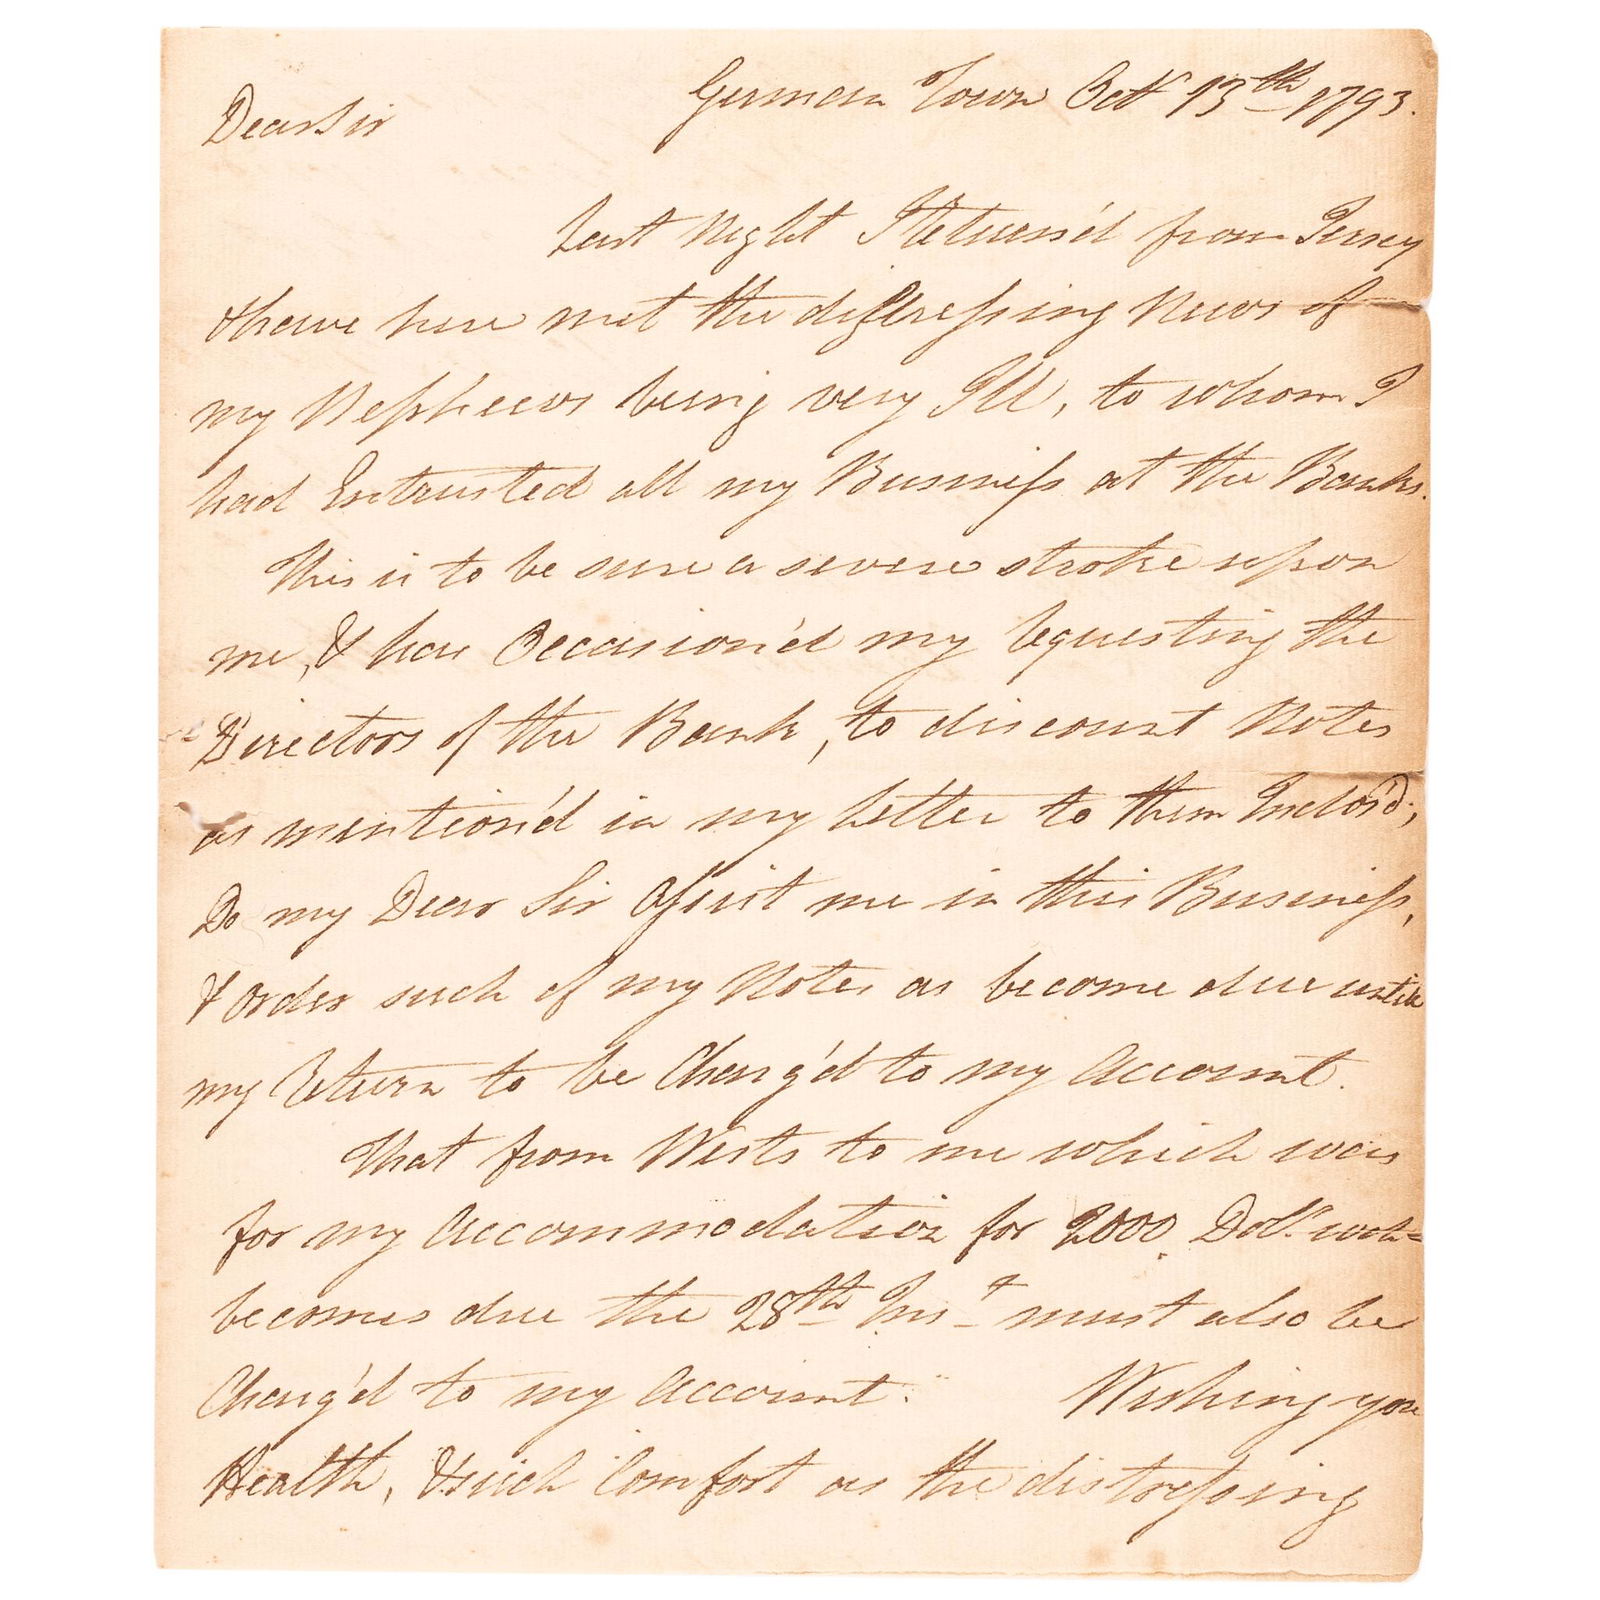 German Town Octr 13th 1793.
Dear Sir
Last Night I Return'd from Jersey
& have here met the distressing News of
my Nephews being very Ill, to whom I
had Entrusted all my Business at the Banks.
This is to be sure a severe stroke upon
me, & has Occasion'd my requesting the
Directors of the Bank, to discount Notes
as mention'd in my letter to them Inclos'd;
Do my Dear Sir assist me in this Business,
& order such of my Notes as become due untill
my return to be Charg'd to my Account.
That from Wests to me which was
for my Accommodation for 2000 Dolls. wch
becomes due the 28th Inst must also be
Charg'd to my Account. Wishing you
Health, & such Comfort as the distressing